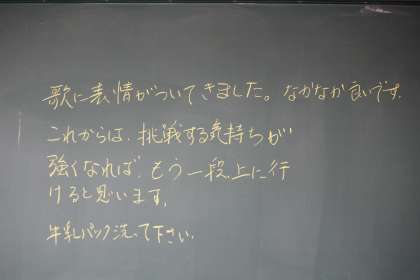 歌に表情がついてきました。なかなか良いです。
これからは、挑戦する気持ちが
強くなれば、もう一段上に行
けると思います。
牛乳パック洗って下さい。